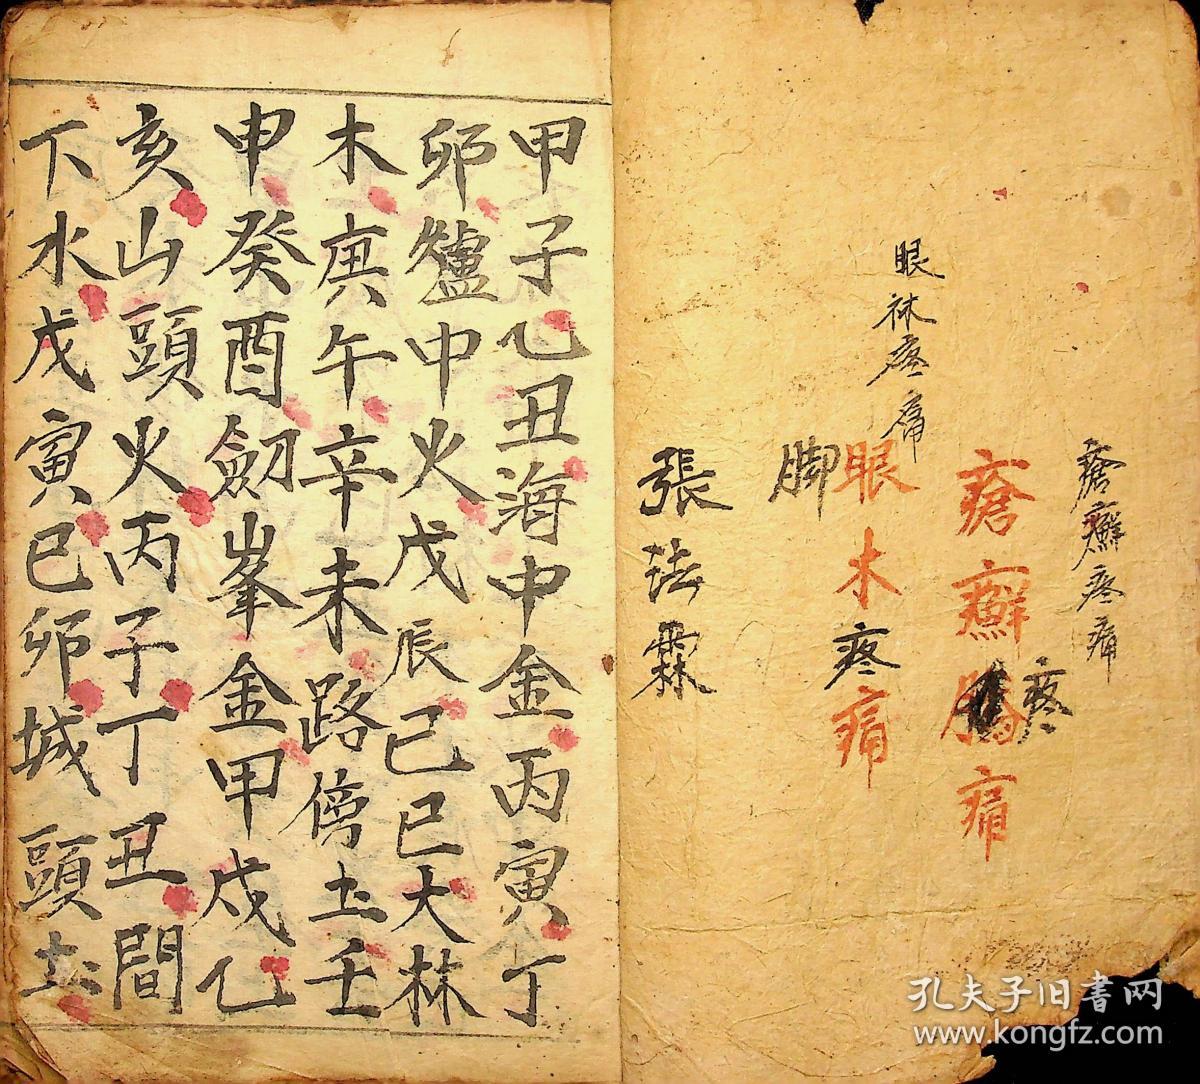 瘡癬疼痛
瘡癬疼痛
眼袜疼痛
眼木疼痛
脚
張法霖
甲子乙丑海中金丙寅丁
卯爐中火戊辰己巳大林
木庚午辛未路傍土壬
申癸酉劒峯金甲戌乙
亥山頭火丙子丁丑間
下水戊寅已卯城頭土
孔夫子旧書网
www.kongfz.com